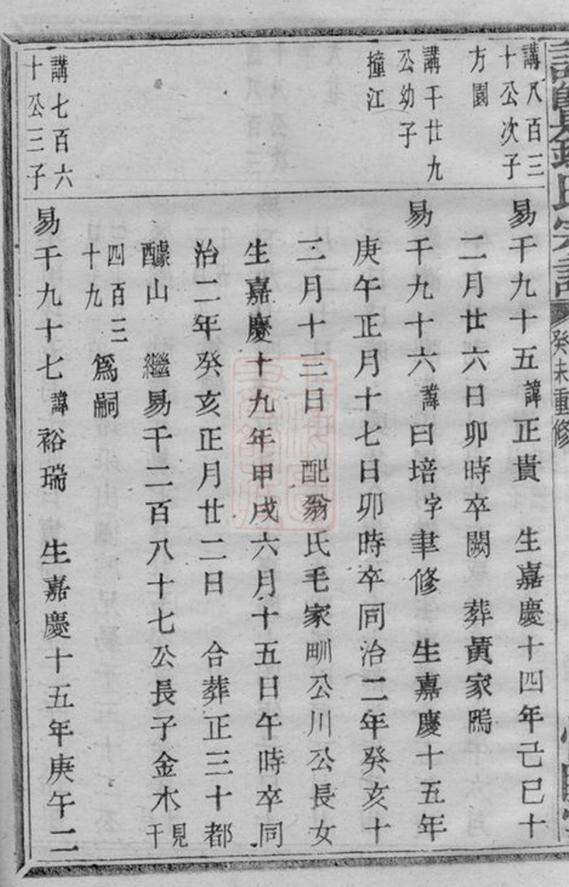 癸未重修
講八百三
十公次子
方園
講千廿九
公幼子
撞江
講七百六
十公三子
易千九十五諱正貴 生嘉慶十四年己巳十
二月廿六日卯時卒闕 葬黃家鴎
易千九十六諱曰培字聿修 生嘉慶十五年
庚午正月十七日卯時卒同治二年癸亥十
二月十三日 配翁氏毛家甽公川公長女
生嘉慶十九年甲戌六月十五日午時卒同
治二年癸亥正月廿二日 合葬正三十都
醵山 繼易千二百八十七公長子金木見千
四百三十九 爲嗣
易千九十七諱裕瑞 生嘉慶十五年庚午二